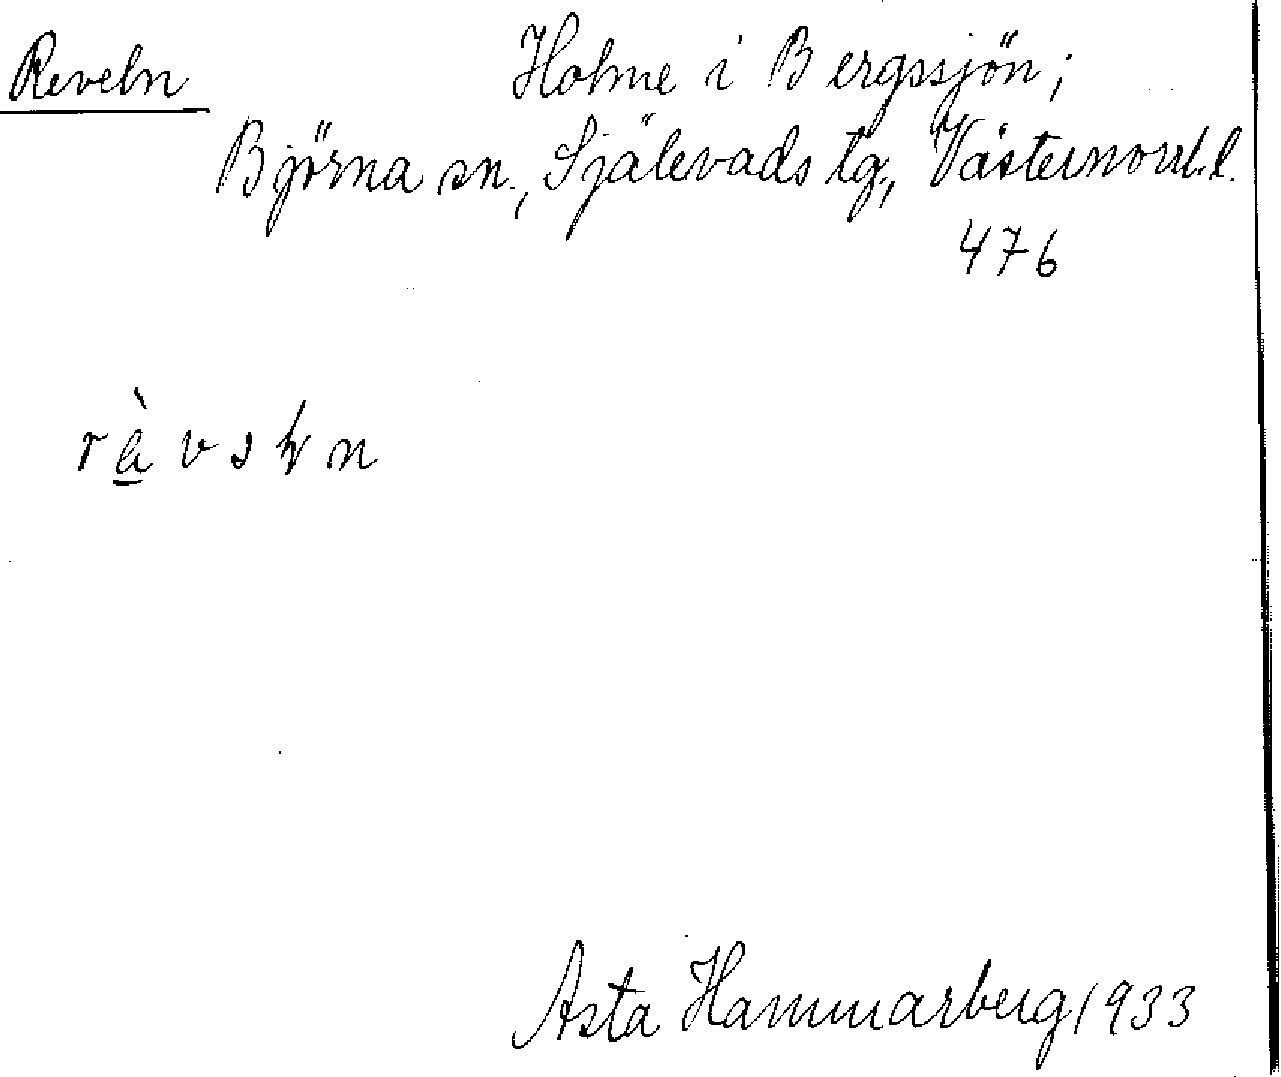 Reveln Holme i Bergssjön;
Björna sn., Själevads tg., Västernorrl. l.
476
Asta Hammarberg 1933